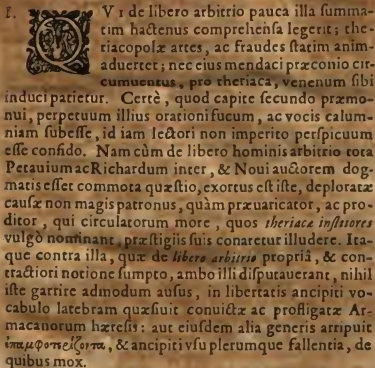 I. QVI de libero arbitrio pauca illa ſumma-
tim hactenus comprehenſa legerit; the-
riacopolæ artes, ac fraudes ſtatim anim-
aduertet; nec eius mendaci præconio cir-
cumuentus, pro theriaca, venenum ſibi
induci patietur. Certè, quod capite ſecundo præmo-
nui, perpetuum illius orationi fucum, ac vocis calum-
niam ſubeſſe, id iam lectori non imperito perſpicuum
eſſe confido. Nam cùm de libero hominis arbitrio tota
Petauium ac Richardum inter, & Noui auctorem dog-
matis eſſet commota quæſtio, exortus eſt iſte, deploratæ
cauſæ non magis patronus, quàm præuaricator, ac pro-
ditor, qui circulatorum more, quos theriacæ inſtitores
vulgò nominant, præſtigiis ſuis conaretur illudere. Ita-
que contra illa, quæ de libero arbitrio propriâ, & con-
tractiori notione ſumpto, ambo illi diſputauerant, nihil
iſte garrire admodum auſus, in libertatis ancipiti vo-
cabulo latebram quæſiuit conuictæ ac profligatæ Ar-
macanorum hæreſis: aut eiuſdem alia generis arripuit
ἐπαμφοτερίζοντα, & ancipiti vſu plerumque fallentia, de
quibus mox.